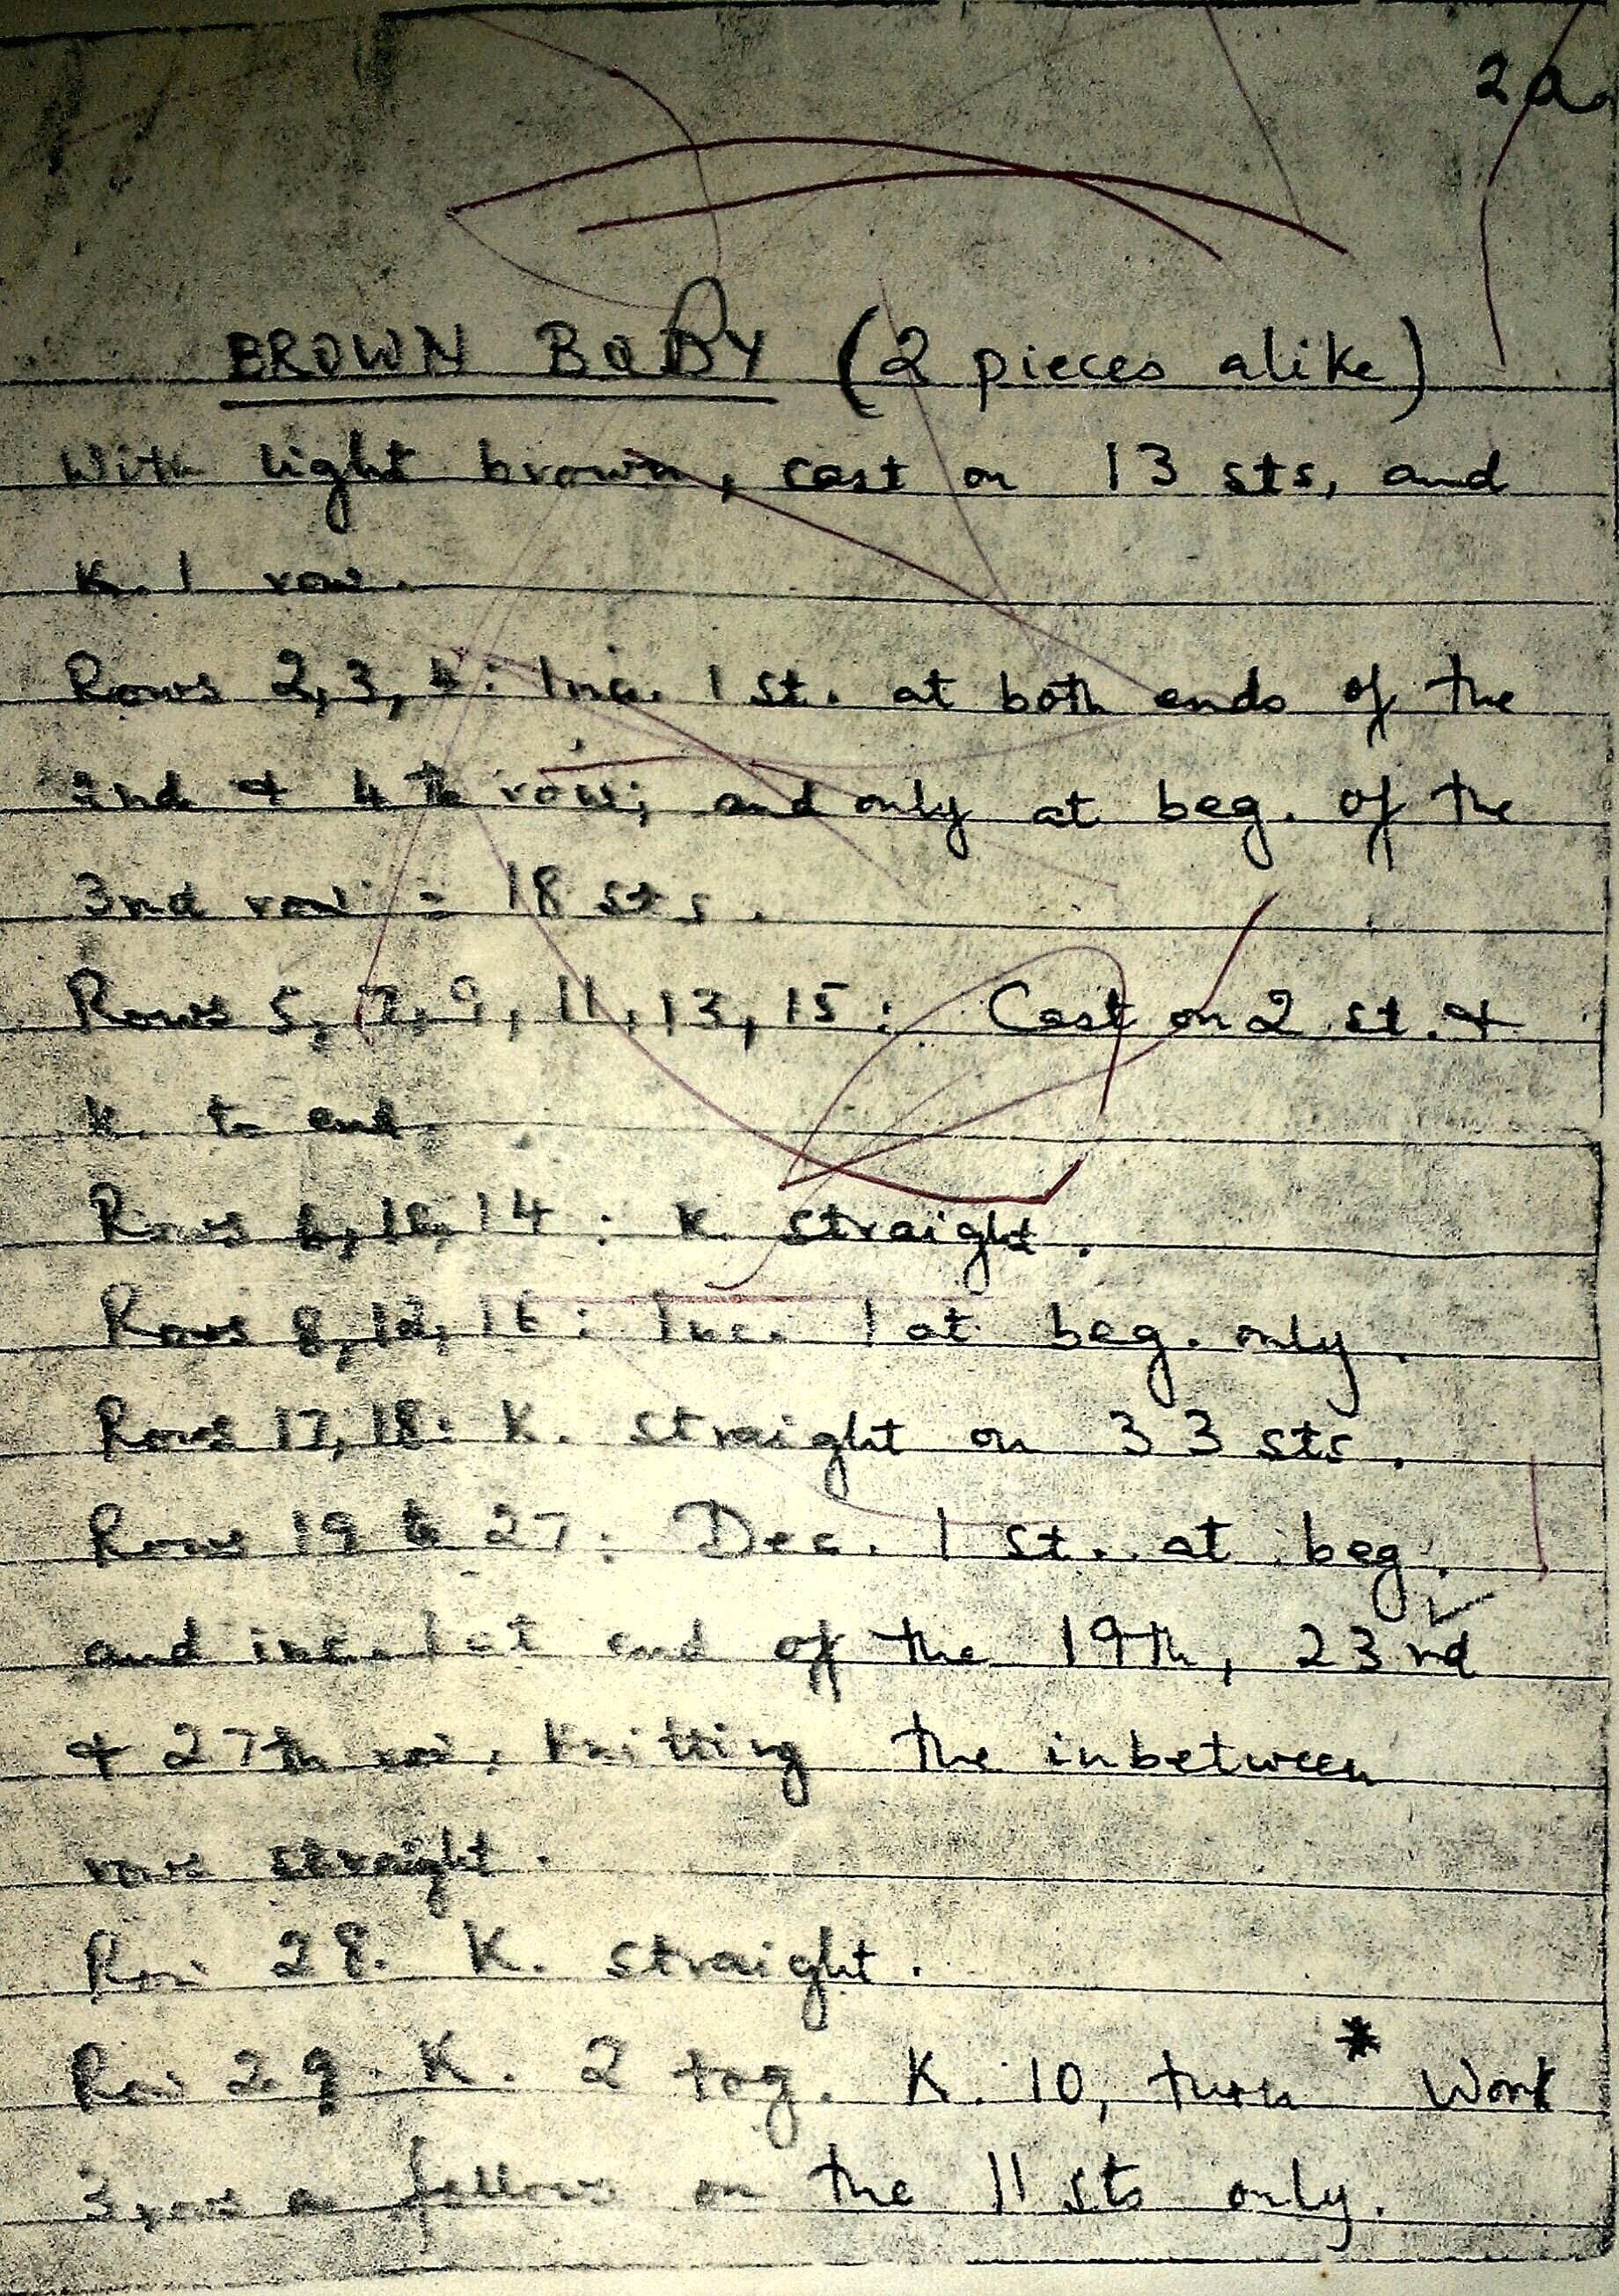 2a.
BROWN BODY (2 pieces alike)
With light brown, cast on 13 sts, and
K. 1 row.
Rows 2, 3, 4: Inc. 1 st. at both ends of the
2nd & 4th row; and only at beg. of the
3nd row = 18 sts.
Rows 5, 7, 9, 11, 13, 15: Cast on 2 st. &
K. to end.
Rows 6, 10, 14: K. straight.
Rows 8, 12, 16: Inc. 1 at beg. only.
Rows 17, 18: K. straight on 33 sts.
Rows 19 to 27: Dec. 1 st. at beg.
and inc. 1 at end of the 19th, 23rd
& 27th row, knitting the inbetween
rows straight.
Row 28. K. straight.
Row 29. K. 2 tog. K. 10, turn * Work
3 rows as follows on the 11 sts only.